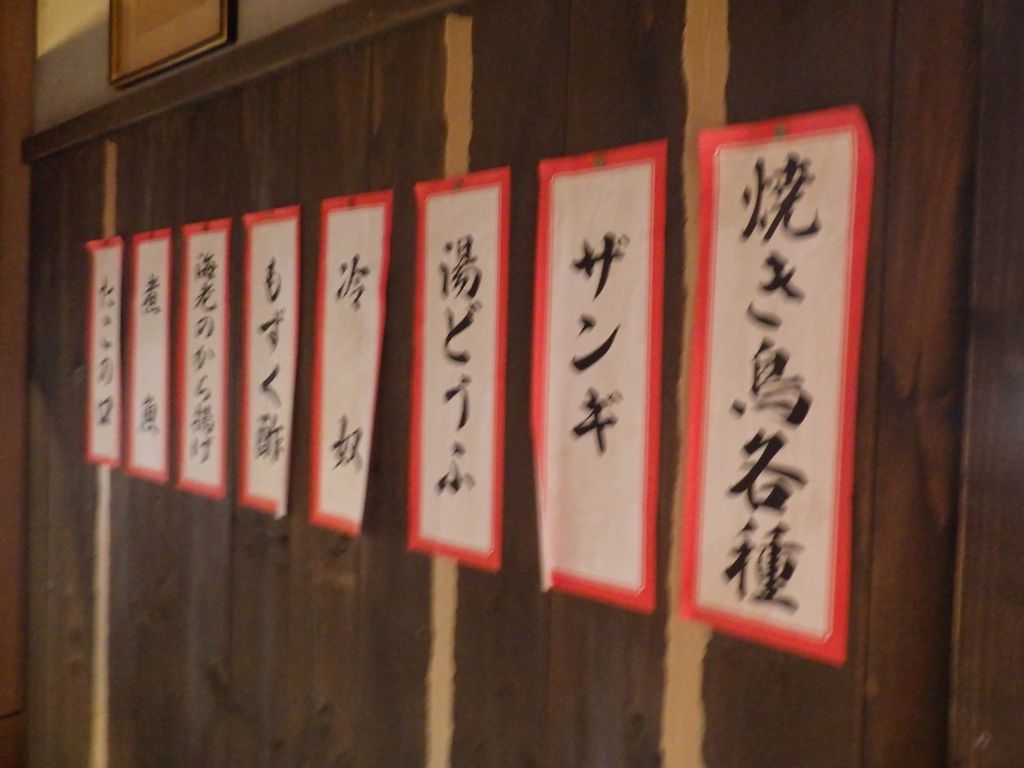 焼き鳥各種
ザンギ
湯どうふ
冷奴
もずく酢
海老のから揚げ
煮魚
たこの